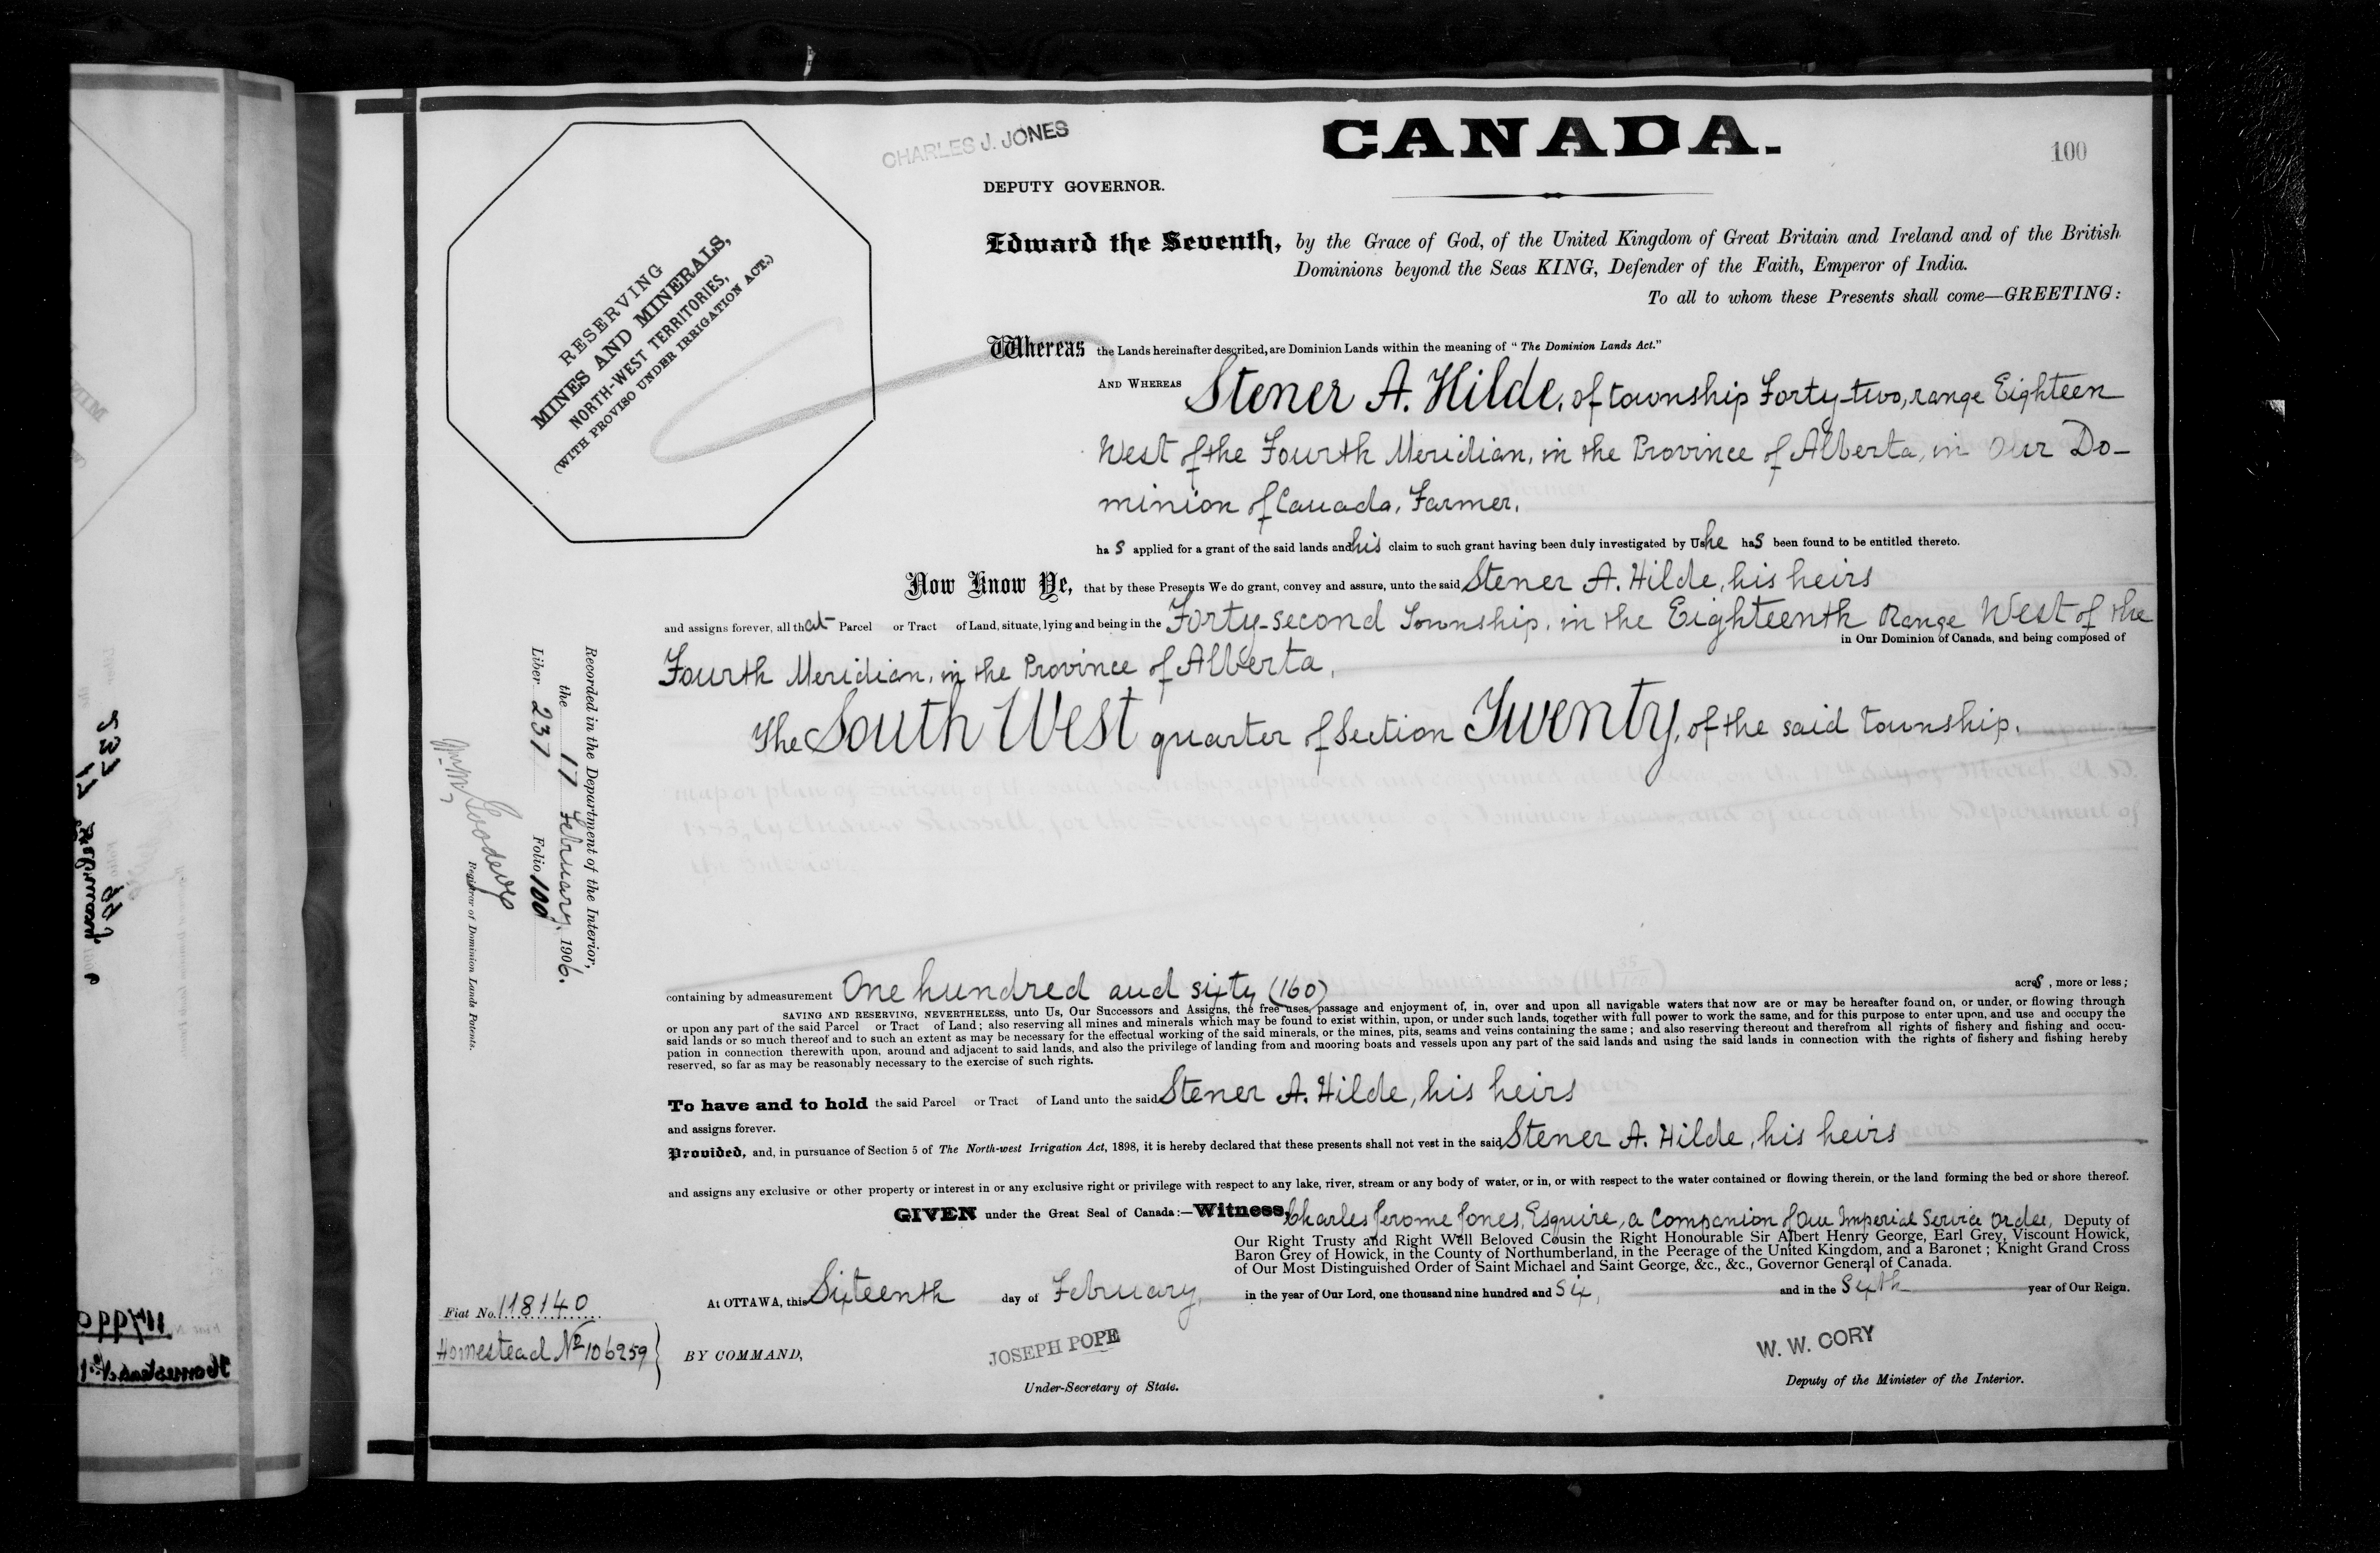 CHARLES J. JONES
CANADA.
100
DEPUTY GOVERNOR.
RESERVING
MINES AND MINERALS,
NORTH-WEST TERRITORIES,
(WITH PROVISO UNDER IRRIGATION ACT.)
Edward the Seventh, by the Grace of God, of the United Kingdom of Great Britain and Ireland and of the British
Dominions beyond the Seas KING, Defender of the Faith, Emperor of India.
To all to whom these Presents shall come—GREETING:
Whereas the Lands hereinafter described, are Dominion Lands within the meaning of "The Dominion Lands Act."
AND WHEREAS Stener A. Hilde, of township Forty-two, range Eighteen
West of the Fourth Meridian, in the Province of Alberta, in Our Do-
minion of Canada, Farmer.
ha s applied for a grant of the said lands and his claim to such grant having been duly investigated by Us he has been found to be entitled thereto.
Now Know Ye, that by these Presents We do grant, convey and assure, unto the said Stener A. Hilde, his heirs
and assigns forever, all that Parcel or Tract of Land, situate, lying and being in the Forty-second Township, in the Eighteenth Range West of the
in Our Dominion of Canada, and being composed of
Fourth Meridian, in the Province of Alberta,
The South West quarter of Section Twenty, of the said township.
Recorded in the Department of the Interior,
the 17 February, 1906.
Liber 237 Folio 100
Registrar of Dominion Lands Patents.
containing by admeasurement One hundred and sixty (160) acres, more or less;
SAVING AND RESERVING, NEVERTHELESS, unto Us, Our Successors and Assigns, the free uses, passage and enjoyment of, in, over and upon all navigable waters that now are or may be hereafter found on, or under, or flowing through
or upon any part of the said Parcel or Tract of Land; also reserving all mines and minerals which may be found to exist within, upon, or under such lands, together with full power to work the same, and for this purpose to enter upon, and use and occupy the
said lands or so much thereof and to such an extent as may be necessary for the effectual working of the said minerals, or the mines, pits, seams and veins containing the same; and also reserving thereout and therefrom all rights of fishery and fishing and occu-
pation in connection therewith upon, around and adjacent to said lands, and also the privilege of landing from and mooring boats and vessels upon any part of the said lands and using the said lands in connection with the rights of fishery and fishing hereby
reserved, so far as may be reasonably necessary to the exercise of such rights.
To have and to hold the said Parcel or Tract of Land unto the said Stener A. Hilde, his heirs
and assigns forever.
Provided, and, in pursuance of Section 5 of The North-west Irrigation Act, 1898, it is hereby declared that these presents shall not vest in the said Stener A. Hilde, his heirs
and assigns any exclusive or other property or interest in or any exclusive right or privilege with respect to any lake, river, stream or any body of water, or in, or with respect to the water contained or flowing therein, or the land forming the bed or shore thereof.
GIVEN under the Great Seal of Canada:—Witness, Charles Jerome Jones, Esquire, a Companion of Our Imperial Service Order, Deputy of
Our Right Trusty and Right Well Beloved Cousin the Right Honourable Sir Albert Henry George, Earl Grey, Viscount Howick,
Baron Grey of Howick, in the County of Northumberland, in the Peerage of the United Kingdom, and a Baronet; Knight Grand Cross
of Our Most Distinguished Order of Saint Michael and Saint George, &c., &c., Governor General of Canada.
At OTTAWA, this Sixteenth day of February, in the year of Our Lord, one thousand nine hundred and Six, and in the Sixth year of Our Reign.
Fiat No. 118140
Homestead No 106259
BY COMMAND,
JOSEPH POPE
Under-Secretary of State.
W. W. CORY
Deputy of the Minister of the Interior.